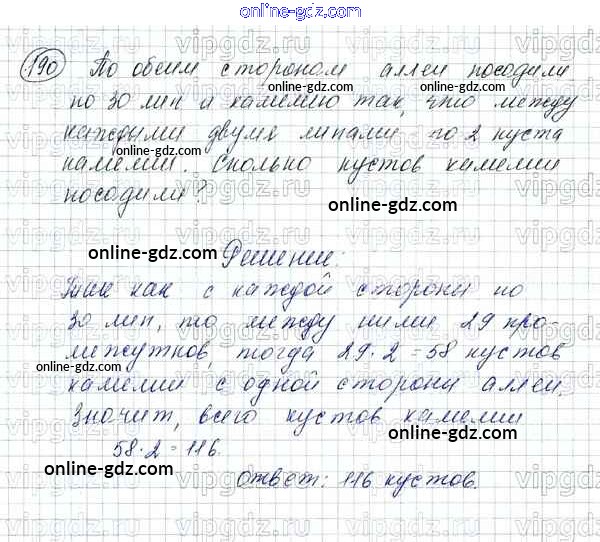 online-gdz.com
190 По обеим сторонам аллеи посадили
по 30 лип и камелию так, что между
каждыми двумя липами по 2 куста
камелии. Сколько кустов камелии
посадили?
online-gdz.com
online-gdz.com
Решение:
Так как с каждой стороны по
30 лип, то между ними 29 про-
межутков, тогда 29·2=58 кустов
online-gdz.com
камелии с одной стороны аллеи.
Значит, всего кустов камелии
58·2=116.
online-gdz.com
online-gdz.com
Ответ: 116 кустов.
online-gdz.com